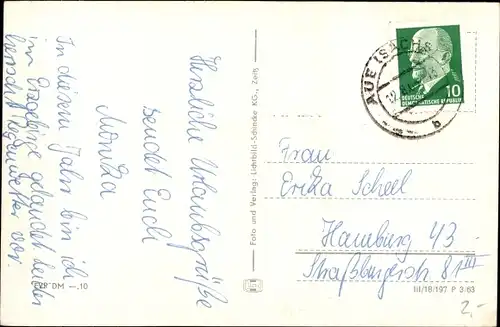 Herzliche Urlaubsgrüße
sendet Euch
Monika
In diesem Jahr bin ich
im Erzgebirge gelandet. Leider
herrscht Regenwetter vor.
EVP DM -.10
Foto und Verlag: Lichtbild-Schincke KG., Zeitz
AUE (SACHS
b
10
DEUTSCHE
DEMOKRATISCHE REPUBLIK
Frau
Erika Scheel
Hamburg 43
Straßburgerstr 81 III
III/18/197 P 3/63
2,-